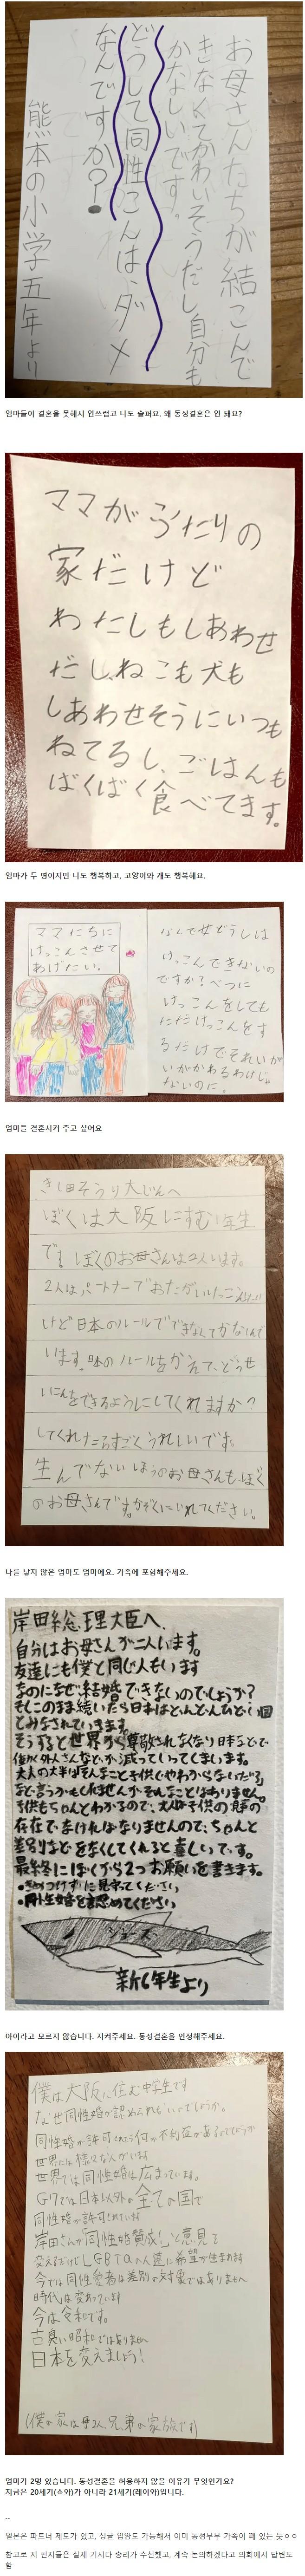 お母さんたちが結こんで
きなくてかわいそうだし自分も
かなしいです。
どうして同性こんはダメ
なんですか?
熊本の小学五年より
엄마들이 결혼을 못해서 안쓰럽고 나도 슬퍼요. 왜 동성결혼은 안 돼요?
ママがふたりの
家だけど
わたしもしあわせ
だしねこも犬も
しあわせそうにいつも
ねてるし、ごはんも
ばくばく食べてます。
엄마가 두 명이지만 나도 행복하고, 고양이와 개도 행복해요.
ママたちに
けっこんさせて
あげたい。
なんで女どうしは
けっこんできないの
ですか?べつに
けっこんをしても
ただけっこんをす
るだけでそれいが
いがかわるわけじゃ
ないのに。
엄마들 결혼시켜 주고 싶어요
きし田そうり大じんへ
ぼくは大阪にすむ1年生
です。ぼくのお母さんは2人います。
2人はパートナーでおたがい
けど日本のルールでできなくてかなしんで
います。日本のルールをかえて、どうせ
いこんをできるようにしてくれますか?
してくれたらすごくうれしいです。
生んでないほうのお母さんもぼく
のお母さんです。かぞくにいれてください。
나를 낳지 않은 엄마도 엄마에요. 가족에 포함해주세요.
岸田総理大臣へ、
自分はお母さんが二人います。
友達にも僕と同じ人もいます
なのになぜ結婚できないのでしょうか?
そこのまま続いたら日本はどんどん
とみなされていきます。
そうすると世界から尊敬されなくなり日本
外人さんなどが減っていってしまいます。
大人の大半はそんなこと子供じゃわからないだろ
などと言うかもしれませんがそんなことはありません。
子供もちゃんとわかるので、大人は子供の見本の
存在でなければなりませんので、ちゃんと
差別などをなくしてくれると喜しいです。
最終にぼくから2つお願いを書きます。
見守ってください
・同性婚を認めてください
新6年生より
아이라고 모르지 않습니다. 지켜주세요. 동성결혼을 인정해주세요.
僕は大阪に住む中学生です
なぜ同性婚が認められないのでしょうか。
同性婚が許可されたら何か不利益があるのでしょうか
世界には様々な人がいます
世界では同性婚は広まっています。
G7では日本以外の全ての国で
同性婚が許可されています
岸田さんが「同性婚賛成!」と意見を
変えるだけでLGBTQの人達に希望が生まれます
今では同性愛者は差別の対象ではありません
時代は変わっています
今は令和です。
古臭い昭和ではありません
日本を変えましょう!
(僕の家は母2人、兄、弟の家族です)
엄마가 2명 있습니다. 동성결혼을 허용하지 않을 이유가 무엇인가요?
지금은 20세기(쇼와)가 아니라 21세기(레이와)입니다.
--
일본은 파트너 제도가 있고, 싱글 입양도 가능해서 이미 동성부부 가족이 꽤 있는 듯ㅇㅇ
참고로 저 편지들은 실제 기시다 총리가 수신했고, 계속 논의하겠다고 의회에서 답변도
함